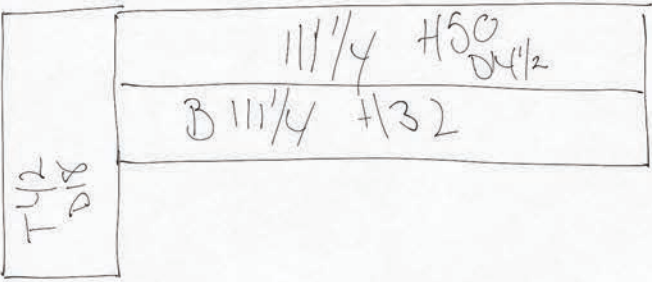 111 1/4 H50
D4 1/2
B 111 1/4 H32
T 42
D18